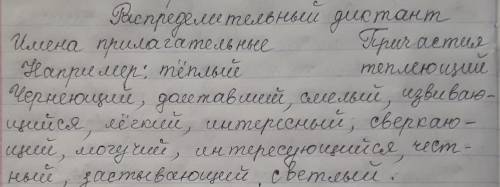 Распределительный диктант
Имена прилагательные Причастия
Например: тёплый теплеющий
Чернеющий, доставший, смелый, извиваю-
щийся, лёгкий, интересный, сверкаю-
щий, могучий, интересующийся, чест-
ный, застывающий, светлый.